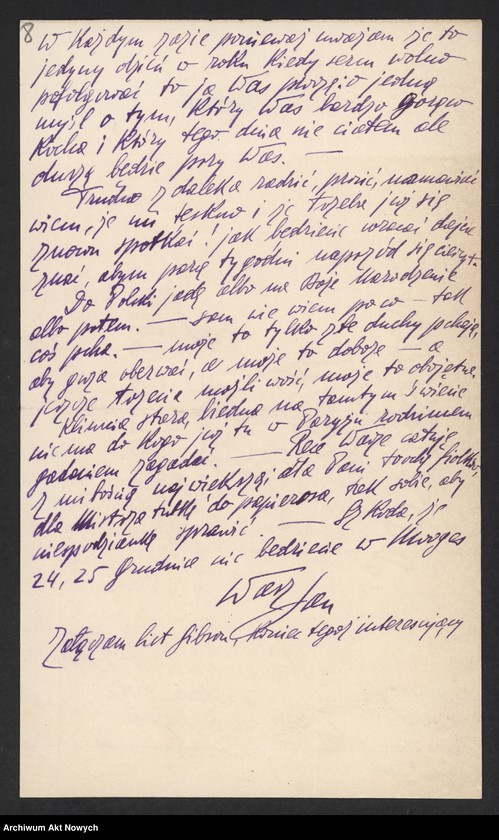 8
W każdym razie ponieważ uważam że to
jedyny dzień w roku kiedy sercu wolno
pofolgować to ja Was proszę o jedną
myśl o tym, który Was bardzo gorąco
kocha i który tego dnia nie ciałem ale
duszą będzie przy Was. —
Trudno z daleka radzić, prosić, namawiać
wiem, że mi teskno i że trzeba już się
znowu spotkać! jak będziecie wracać dajcie
znać, abym parę tygodni naprzód się cieszył.
Do Polski jadę albo na Boże Narodzenie
albo potem. — sam nie wiem po co — tak
coś pcha. — może to tylko złe duchy pchają,
aby guza oberwać, a może to dobrze — a
jeszcze trzecia możliwość, może to obojętne.
Klimcia stara, biedna na tamtym świecie
niema do kogo już tu w Paryżu rodzinnem
gadaniem zagadać. — Ręce Wasze całuję
z miłością największą, dla Pani troche fiołków,
dla Mistrza tutkę do papierosa, tak sobie, aby
niespodziankę sprawić. — Szkoda, że
24, 25 Grudnia nie będziecie w Morges
Wasz Jan
Załączam list Gibson, koniec tegoż interesujący
Archiwum Akt Nowych